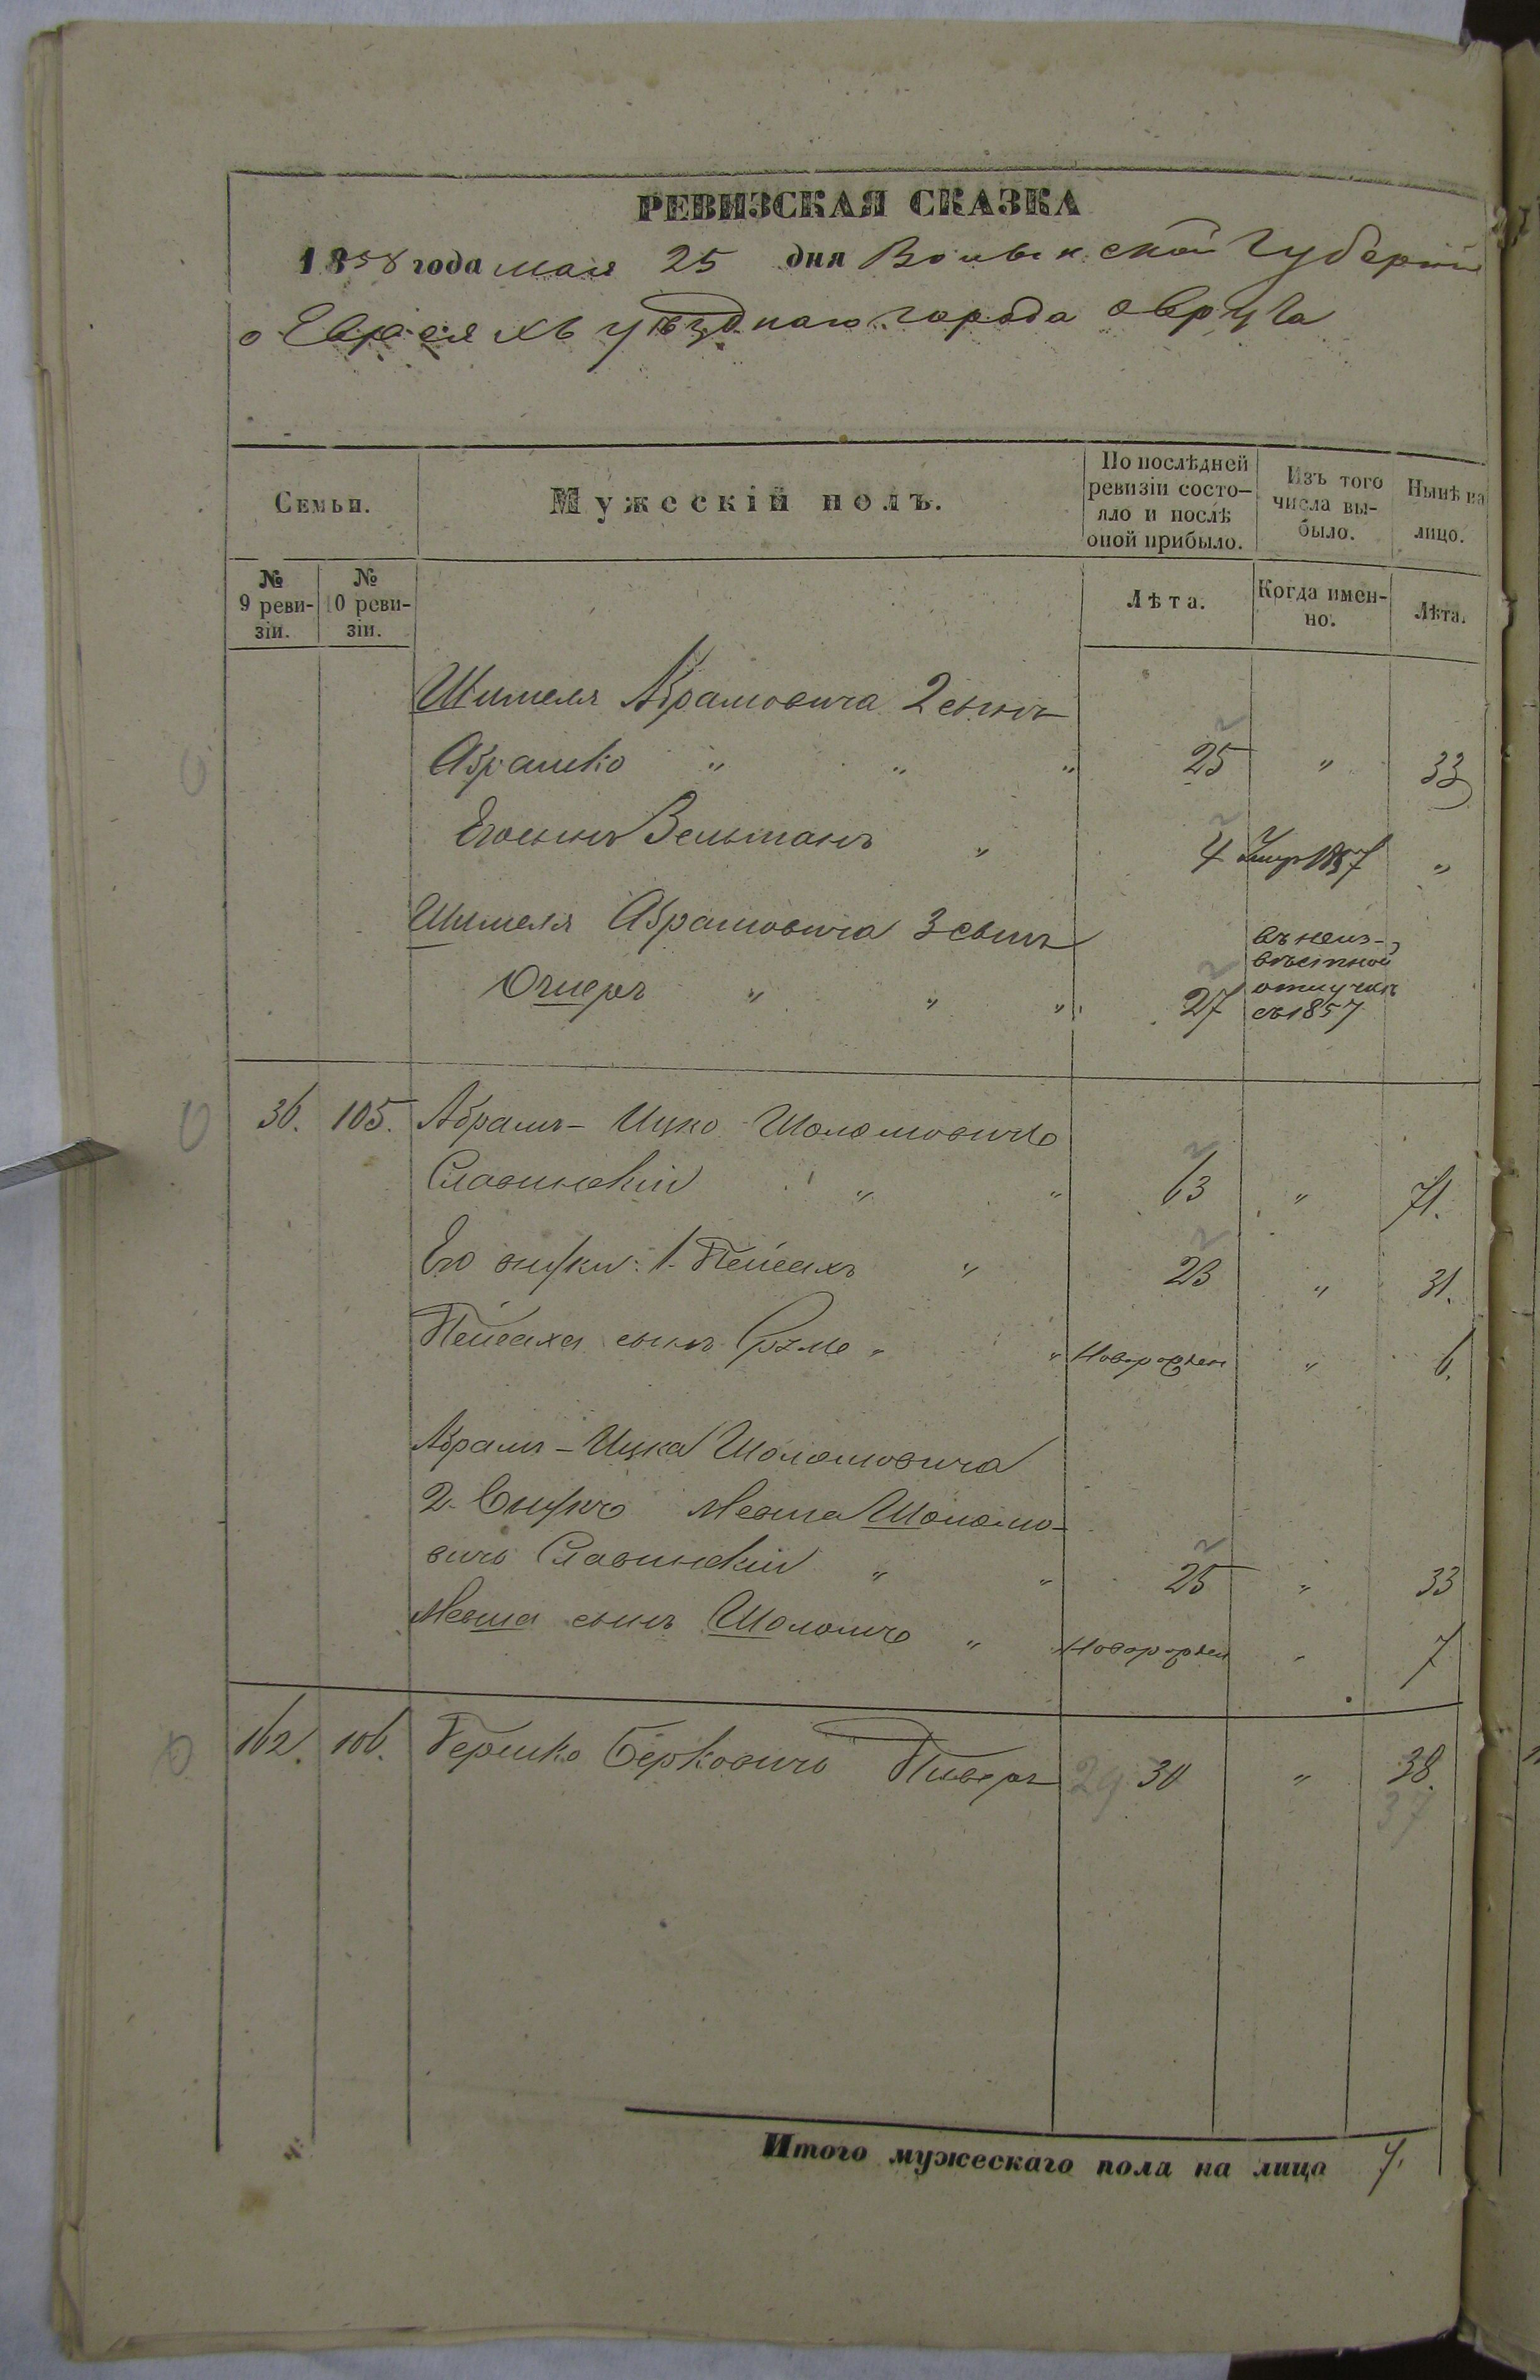 РЕВИЗСКАЯ СКАЗКА
1858 года мая 25 дня Волынской Губернии
о Евреяхъ уѣзднаго города Овруча
Семьи.
Мужескій полъ.
По послѣдней ревизіи состо-
яло и послѣ
оной прибыло.
Изъ того
числа вы-
было.
Нынѣ на
лицо.
№
9 реви-
зіи.
№
10 реви-
зіи.
Лѣта.
Когда имен-
но.
Лѣта.
Шимеля Абрамовича 2 сынъ
Абрамко " " " 25 " 33
Его сынъ Зельманъ " 4 Умеръ 1857 "
Шимеля Абрамовича 3 сынъ
" " " 27 въ неиз-
вѣстной
отлучкѣ
съ 1857
36. 105. Абрамъ-Ицко Шоломовичъ
Славинскій " " 63 " 71.
Его внуки: 1. Пейсахъ " 23 " 31.
Пейсаха сынъ " " Новорожден " 6.
Абрамъ-Ицка Шоломовича
2. Внукъ Мевша Шоломо-
вичъ Славинскій " " 25 " 33
Мевша сынъ Шоломъ " Новорожден " 7
162. 106. Гершко Берковичъ Пиверъ 29 30 " 38.
37
Итого мужескаго пола на лицо 7.